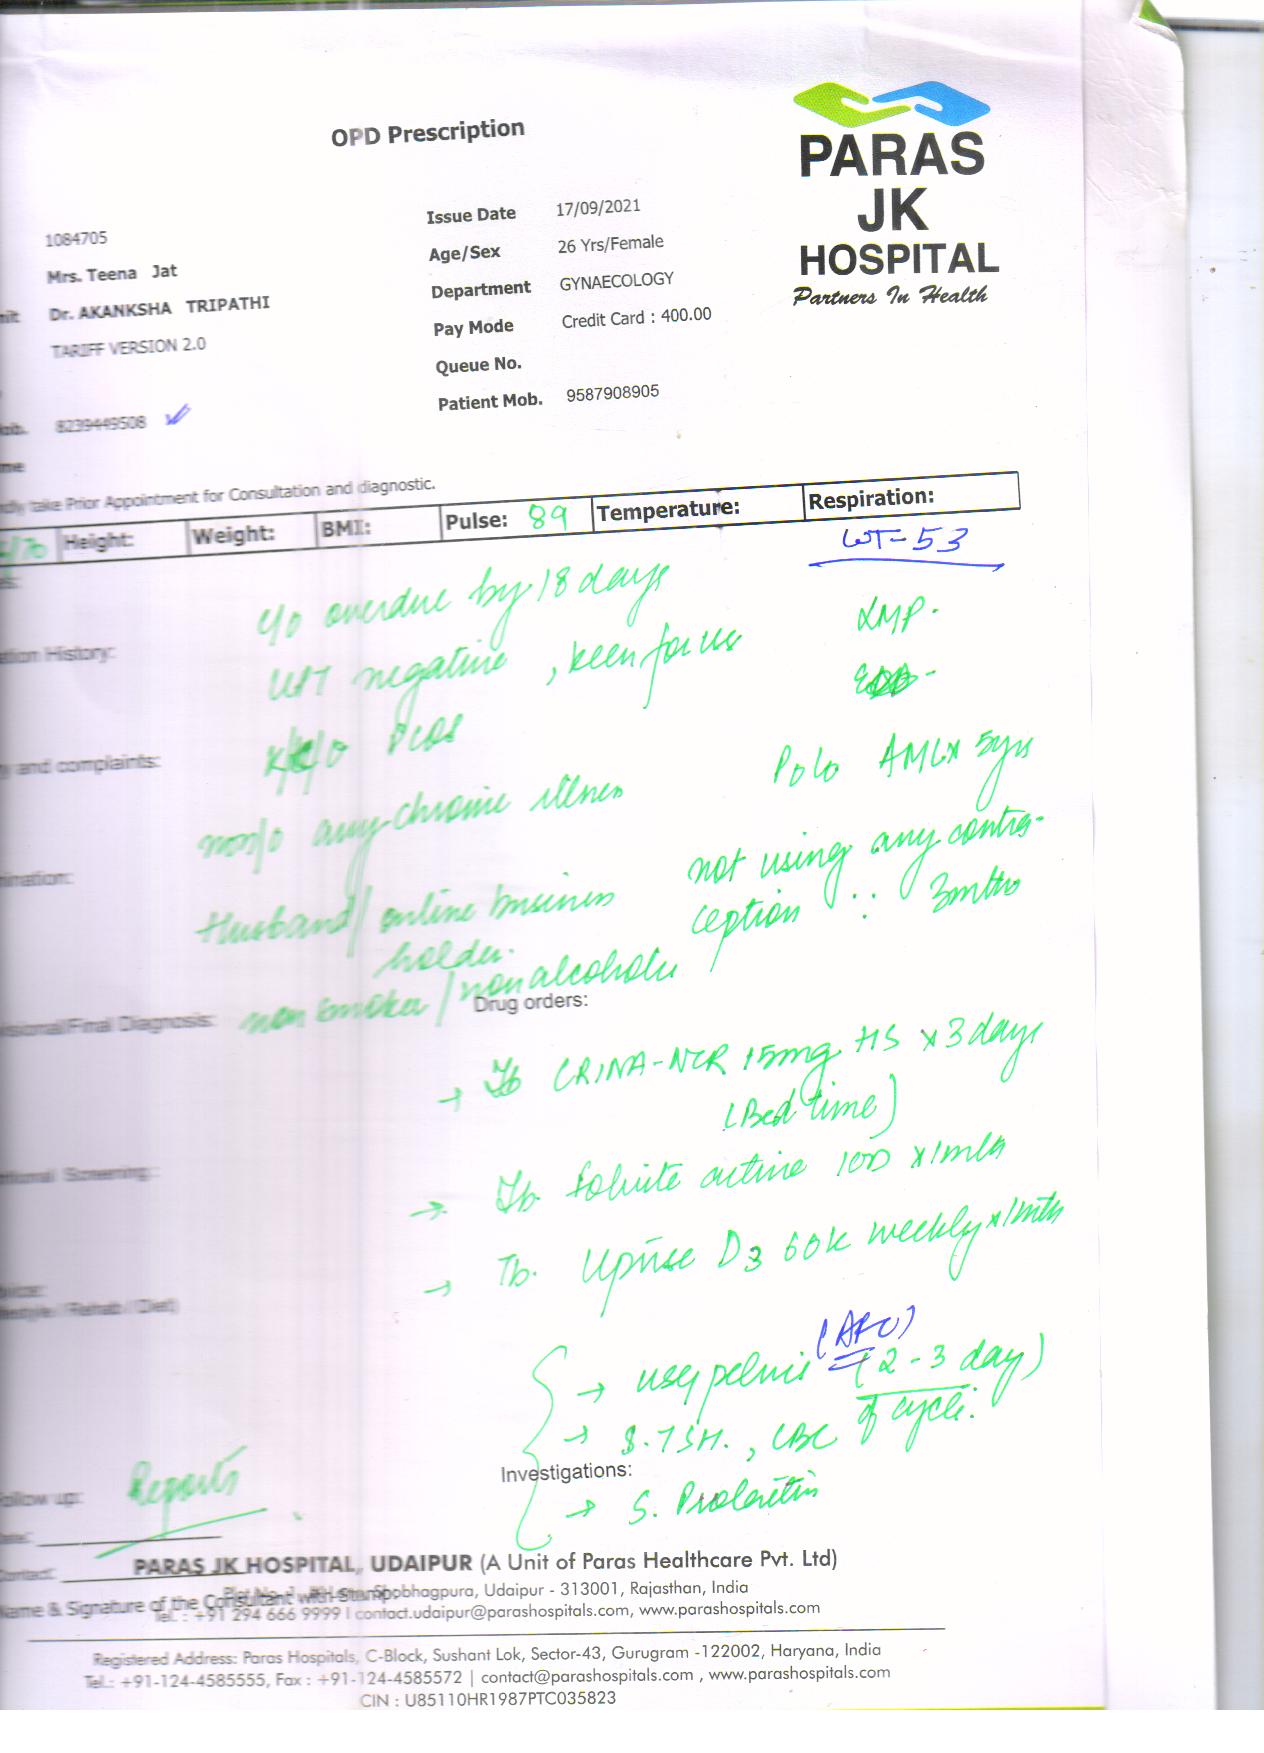 OPD Prescription
PARAS
JK
HOSPITAL
Partners In Health
1084705
Mrs. Teena Jat
Dr. AKANKSHA TRIPATHI
TARIFF VERSION 2.0
8239449508
Issue Date 17/09/2021
Age/Sex 26 Yrs/Female
Department GYNAECOLOGY
Pay Mode Credit Card : 400.00
Queue No.
Patient Mob. 9587908905
take Prior Appointment for Consultation and diagnostic.
Height: Weight: BMI: Pulse: 89 Temperature: Respiration:
WT- 53
c/o overdue by 18 days
LMP.
History:
UPT negative, keen for
K/c/o PCOS
and complaints:
P0L0 AML x 5yrs
any chronic illness
not using any contra-
ception ∵ 3mths
Husband/ online business
holder.
non smoker / non alcoholic
Final Diagnosis:
Drug orders:
→ Tb CRINA-NCR 15mg HS x 3 days
(Bed time)
Screening:
→ Tb. folvite active 1OD x 1mth
→ Tb. Uprise D3 60K weekly x 1mth
(AFC)
→ usg pelvis (2 - 3 day)
of cycle.
→ S. TSH. , CBC
Investigations:
→ S. Prolactin
up: Reports
PARAS JK HOSPITAL, UDAIPUR (A Unit of Paras Healthcare Pvt. Ltd)
Shobhagpura, Udaipur - 313001, Rajasthan, India
Name & Signature of the Consultant with Stamp
Tel. : +91 294 666 9999 | contact.udaipur@parashospitals.com, www.parashospitals.com
Registered Address: Paras Hospitals, C-Block, Sushant Lok, Sector-43, Gurugram -122002, Haryana, India
Tel.: +91-124-4585555, Fax : +91-124-4585572 | contact@parashospitals.com , www.parashospitals.com
CIN : U85110HR1987PTC035823